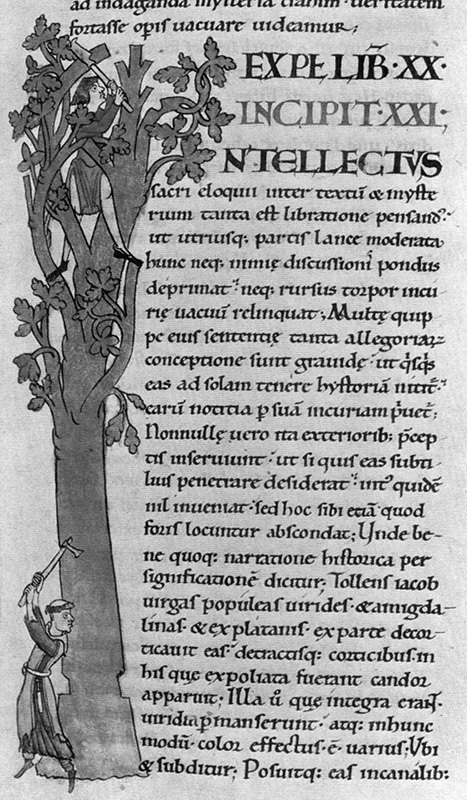 ad indaganda mysteria ueritatem
fortasse opis uacuare uideamur;
EXPL LIB̄·XX·
INCIPIT·XXI;
NTELLECTUS
sacri eloquii inter textū & myste
rium tanta est libratione pensand᷒·
ut utriusq; partis lance moderata
hunc neq; nimię discussioni pondus
deprimat· neq; rursus torpor incu
rię uacuū relinquat; Multę quip
pe eius sententię tanta allegoriarū
conceptione sunt grauidę· ut q̄sq̄s
eas ad solam tenere hystoriā nitit᷑·
earū notitia p suā incuriam p̄uet᷑;
Nonnullę uero ita exteriorib; p̄cep
tis inseruiunt· ut si quis eas subti
lius penetrare desiderat· int᷒ quidē
nil inueniat· sed hoc sibi etiā quod
foris locuntur abscondat; Vnde be-
ne quoq; narratione historica per
significationē dicitur; Tollens iacob
uirgas populeas uirides· & amigda-
linas· & ex platanis· ex parte decor-
ticauit eas· detractisq; corticibus· in
his quę expoliata fuerant candor
apparuit; Illa ū que integra erant·
uiridia pmanserunt· atq; in hunc
modū color effectus· ē uarius; Vbi
& subditur; Posuitq; eas in canalib;